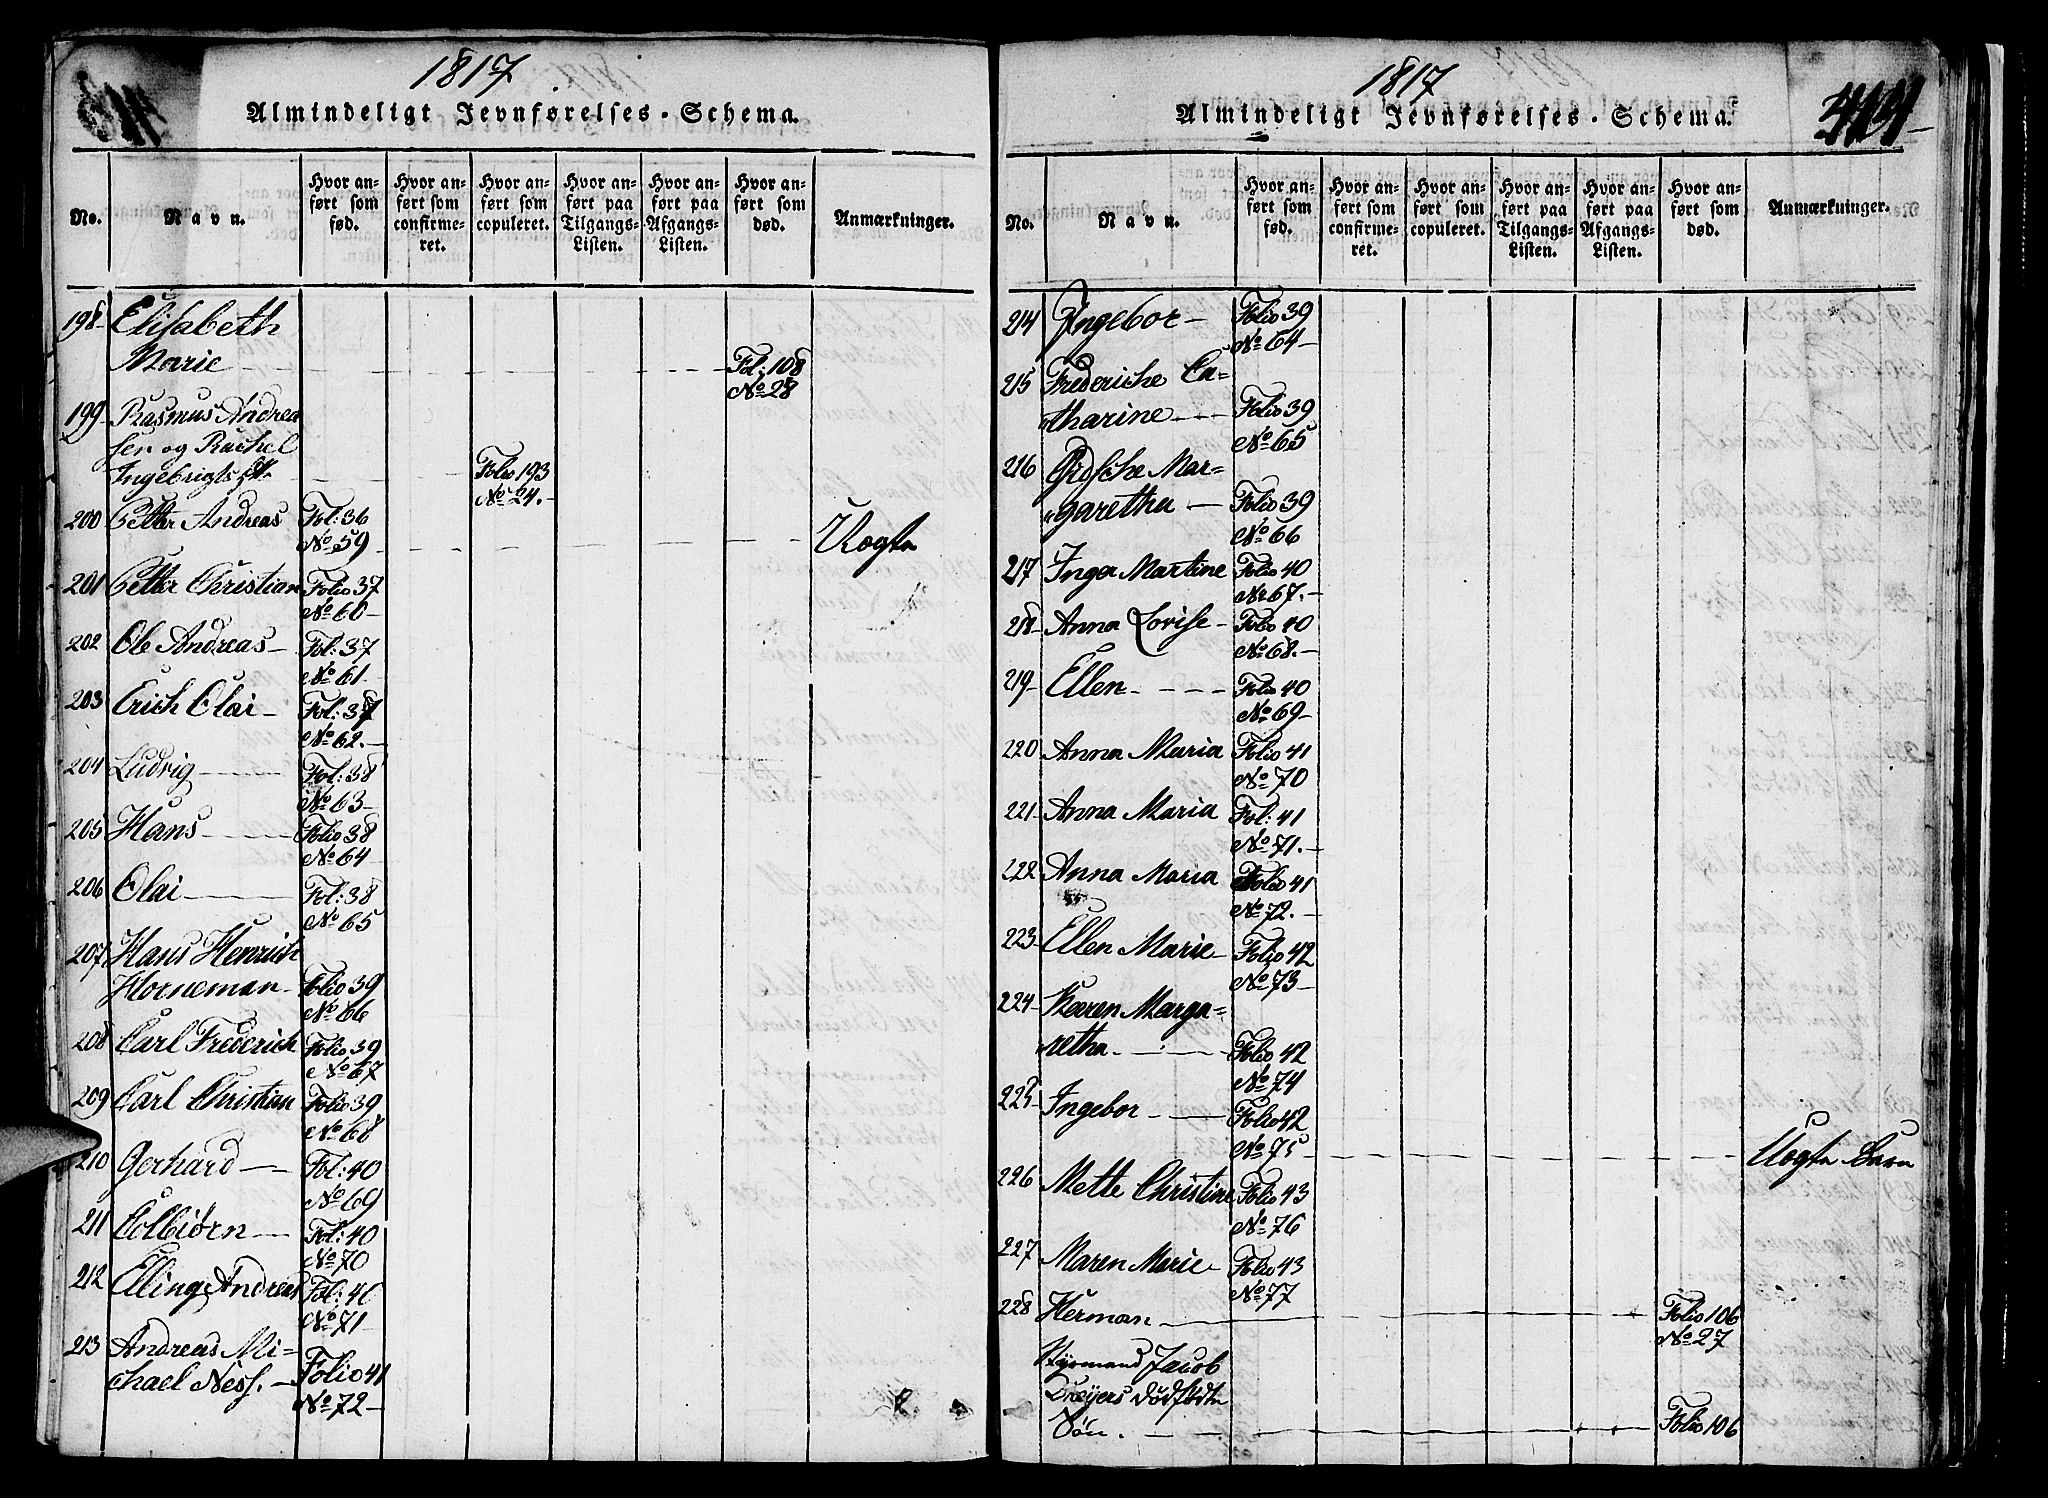 1817
Almindeligt Jevnførelses-Schema.
No.
Navn.
Hvor anført som fød.
Hvor anført som confirmeret.
Hvor anført som copuleret.
Hvor anført paa Tilgangs-Listen.
Hvor anført paa Afgangs-Listen.
Hvor anført som død.
Anmærkninger.
198 Elisabeth
Marie Fol: 108
No 28
199 Rasmus Andrea
sen og Rachel
Ingebrigts Folio 193
No 24.
200 Petter Andreas Fol: 36
No 59
201 Petter Christian Folio 37
No 60
202 Ole Andreas Fol: 37
No 61
203 Erich Olai Fol: 37
No 62.
204 Ludvig Fol: 38
No 63
205 Hans Folio 38
No 64
206 Olai Fol: 38
No 65
207 Hans Henrich
Horneman Folio 39
No 66
208 Carl Frederich Folio 39
No 67
209 Carl Christian Folio 39
No 68
210 Gerhard Fol: 40
No 69
211 Colbiørn Fol: 40
No 70
212 Elling Andreas Fol: 40
No 71
213 Andreas Mi-
chael Ness. Folio 41
No 72
1817
414
Almindeligt Jevnførelses-Schema.
No.
Navn.
Hvor anført som fød.
Hvor anført som confirmeret.
Hvor anført som copuleret.
Hvor anført paa Tilgangs-Listen.
Hvor anført paa Afgangs-Listen.
Hvor anført som død.
Anmærkninger.
214 Ingebor Folio 39
No 64
215 Frederiche Ca-
tharine Folio 39
No 65
216 Mar-
garetha Folio 39
No 66
217 Inger Martine Folio 40
No 67.
218 Anna Lovise Folio 40
No 68.
219 Ellen Folio 40
No 69
220 Anna Maria Folio 41
No 70
221 Anna Maria Fol: 41
No 71.
222 Anna Maria Folio 41
No 72.
223 Ellen Marie Folio 42
No 73
224 Karen Marga-
retha Folio 42
No 74
225 Ingebor Folio 42
No 75
226 Mette Christine Folio 43
No 76
227 Maren Marie Folio 43
No 77
228 Herman Folio 106
No 27
Styrmand Jacob
Dreyers dødfødte
Søn. Folio 106